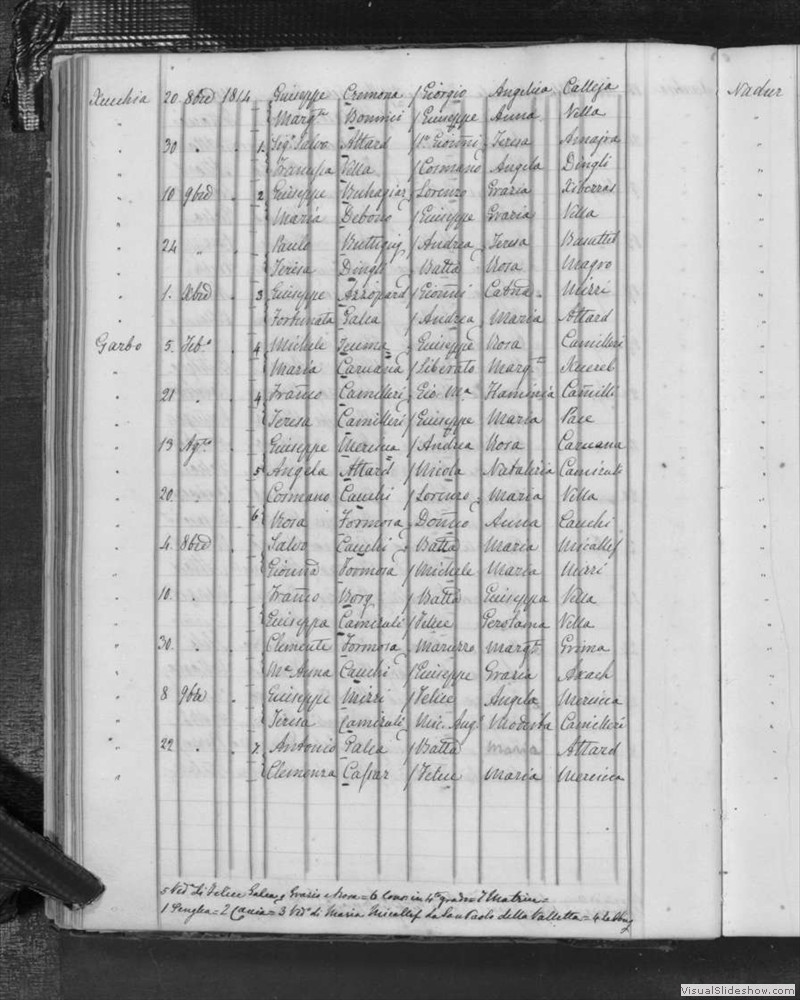 Xeuchia 20 8bre 1814 Giuseppe Cremona Giorgio Angelica Calleja Nadur
Margta Bonnici Giuseppe Anna Villa
30 1 Sigr Salvo Attard Giovni Teresa
Villa Cosmano Angela Dingli
10 9bre 2 Giuseppe Buhagiar Lorenzo Grazia Xiberras
Maria Debono Giuseppe Grazia Villa
24 Paulo Buttigieg Andrea Teresa Basuttil
Teresa Dingli Batta Rosa Magro
1. Xbre 3 Giuseppe Azzopard Giovni Catna Mizzi
Fortunata Galea Andrea Maria Attard
Garbo 5 Febo 4 Michele Teuma Giuseppe Rosa Camilleri
Maria Caruana Liberato Margta Xuereb
21 4 Franco Camilleri Gio Ma Flaminia Camilli
Teresa Camilleri Giuseppe Maria Pace
13 Agto Giuseppe Mercieca Andrea Rosa Caruana
5 Angela Attard Nicola Natalizia Camizuli
20 Cosmano Cauchi Lorenzo Maria Villa
6 Rosa Formosa Domco Anna Cauchi
4 8bre Salvo Cauchi Batta Maria Micallef
Gionna Formosa Michele Maria Mizzi
10 Franco Borg Batta Giuseppa Villa
Giuseppa Camizuli Felice Gerolama Villa
30 Clemente Formosa Maruzzo Margta Grima
Ma Anna Cauchi Giuseppe Grazia Axach
8 9bre Giuseppe Mizzi Felice Angela Mercieca
Teresa Camizuli Mic. Angl Modesta Camilleri
22 7 Antonio Galea Batta Maria Attard
Clemenza Caspar Felice Maria Mercieca
5 Veda di Felice Galea, Grazio e Rosa = 6 in 4to grado = 7 Matrice =
1 Senglea = 2 = 3 Vedo di Maria Micallef da San Paolo della Valletta = 4
VisualSlideshow.com